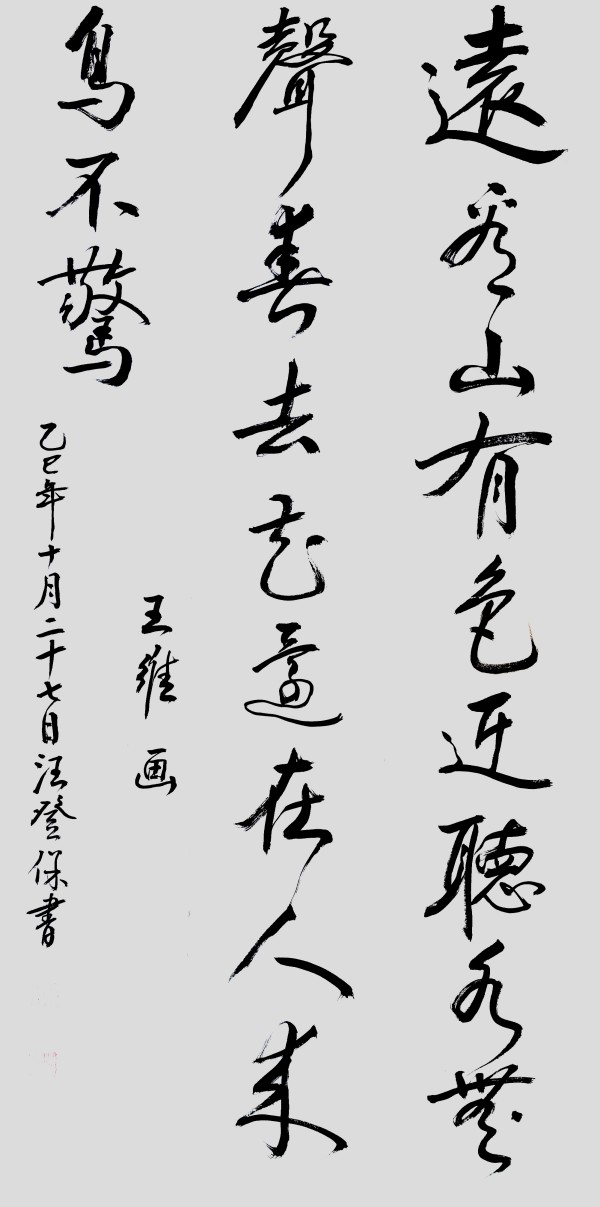 遠看山有色近聽水無
聲春去花還在人來
鳥不驚
王維画
乙巳年十月二十七日汪登保書